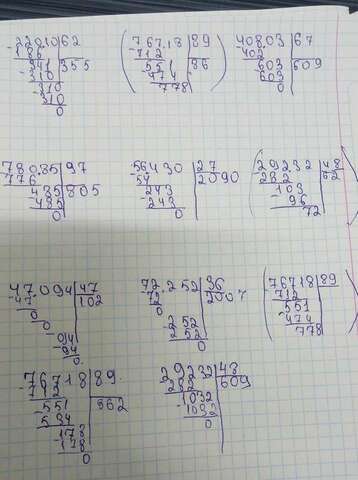 22010 62
186
341 355
310
310
310
0
76718 89
712
551 86
474
778
40803 67
402
603 609
603
0
78085 97
776
485 805
485
0
56430 27
54 2090
243
243
0
29232 48
282 62
103
96
72
47.094 47
47 102
0
0
94
94
0
72.252 36
72 2007
0
252
252
0
76718 89
712
551
474
778
76718 89
712
551 862
534
178
178
0
29232 48
288 609
1032
1032
0